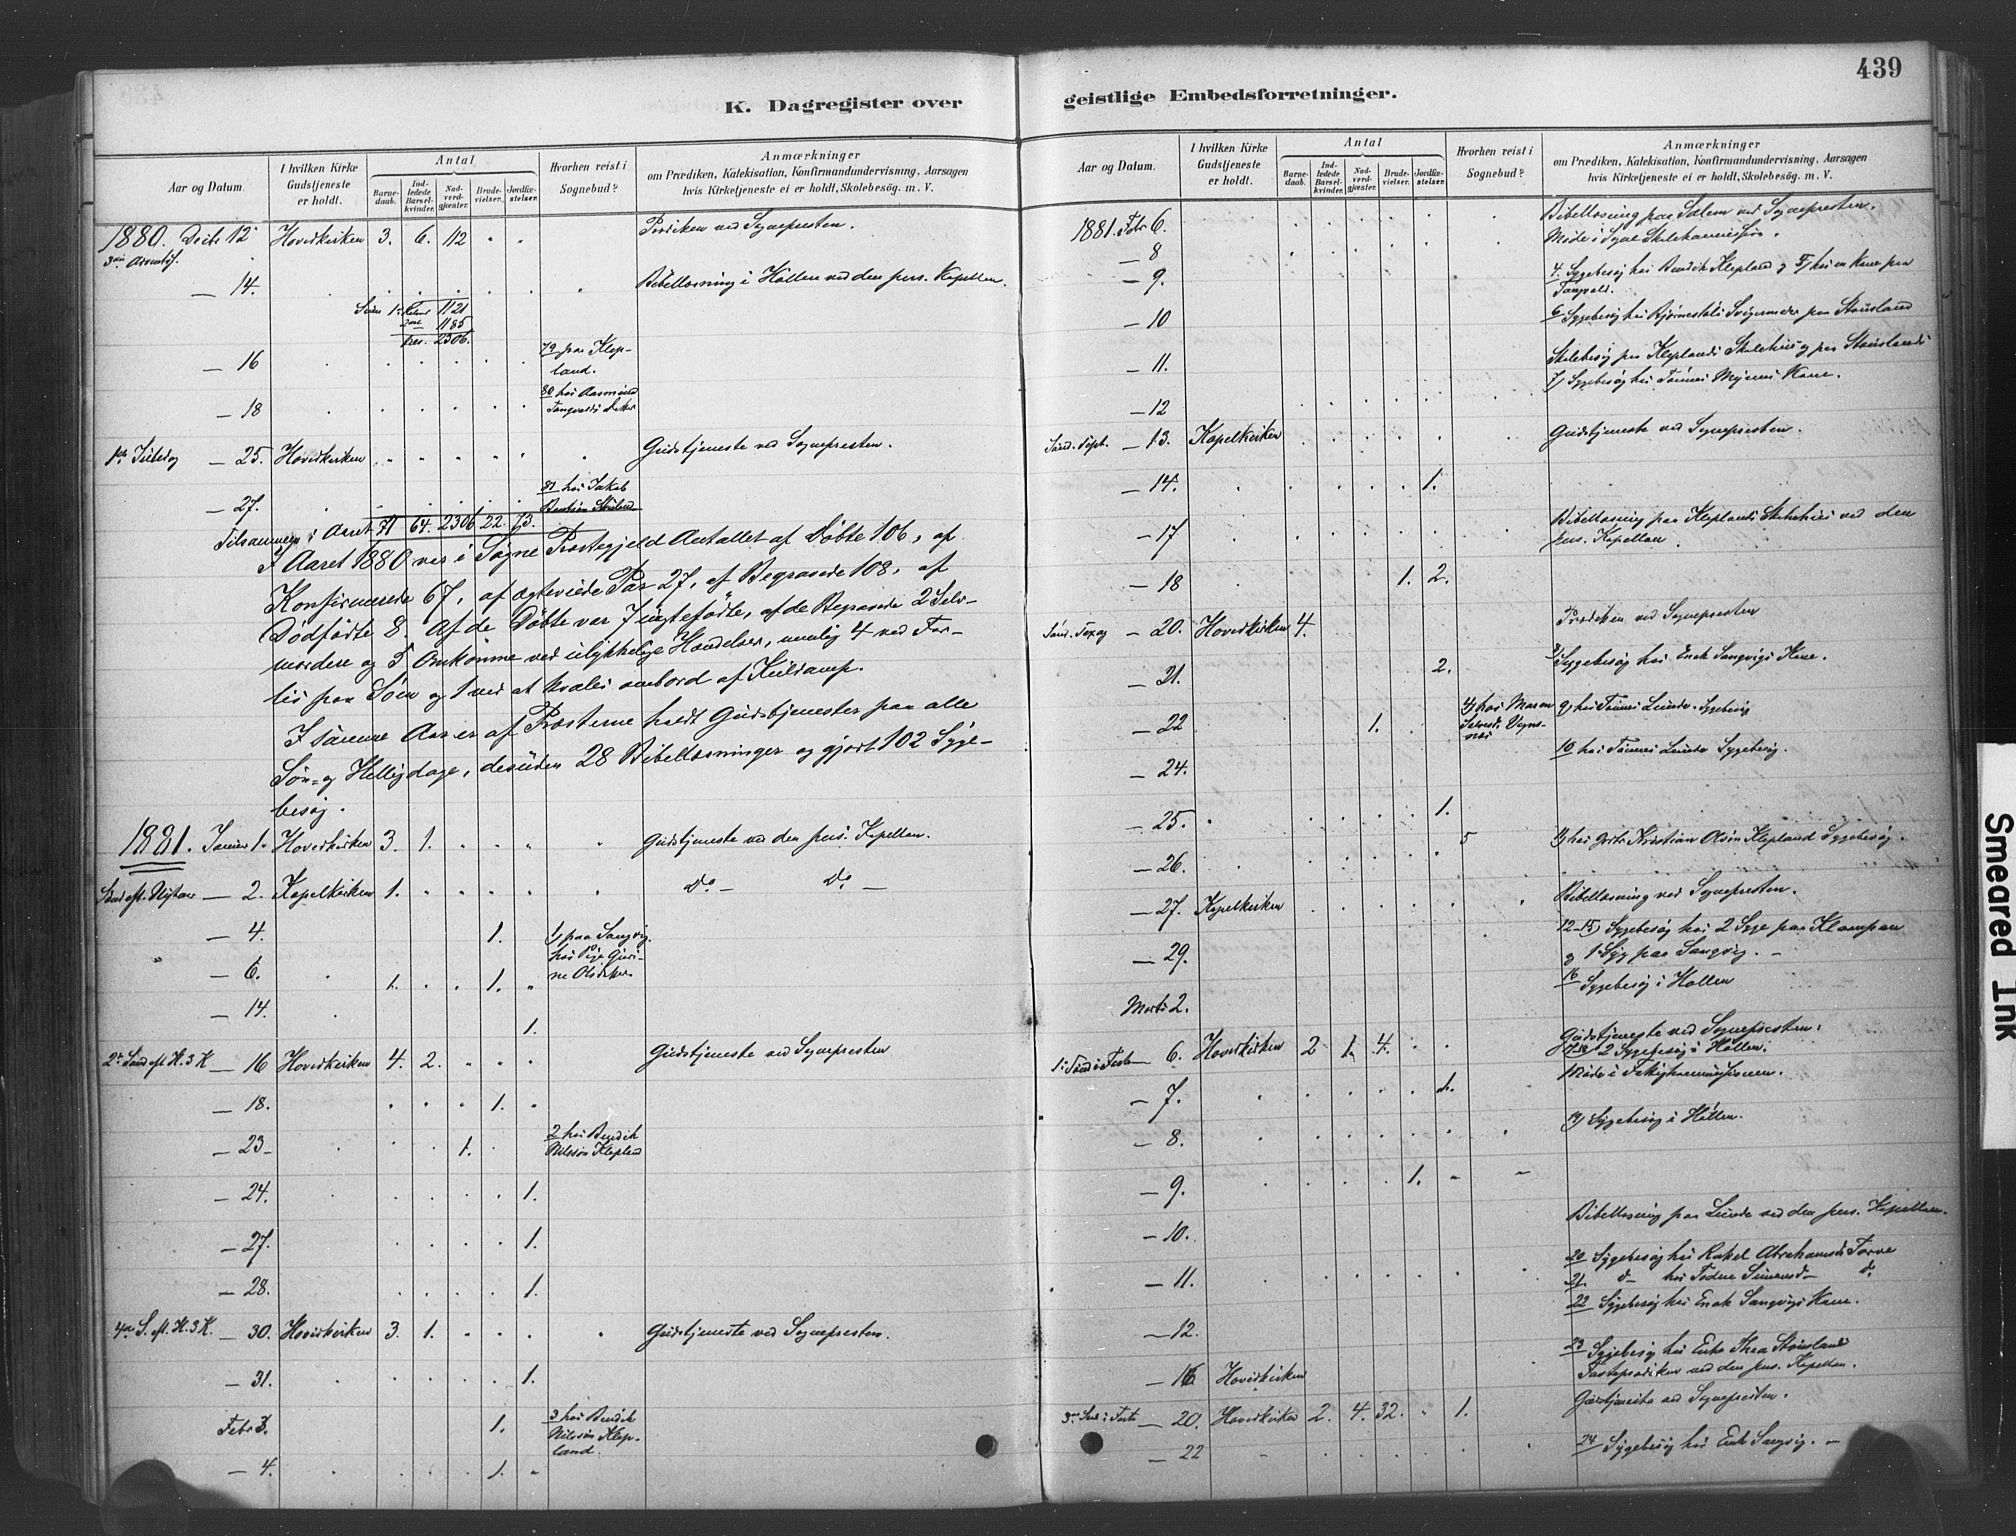 439
K. Dagregister over geistlige Embedsforretninger.
Aar og Datum.
I hvilken Kirke Gudstjeneste er holdt.
Antal
Barnedaab.
Indledede Barselkvinder.
Nadverdgjester.
Brudevielser.
Jordfæstelser.
Hvorhen reist i Sognebud?
Anmærkninger
om Prædiken, Katekisation, Konfirmandundervisning, Aarsagen
hvis Kirketjeneste ei er holdt, Skolebesøg. m. V.
1880. Decbr 12 Hovedkirken 3. 6. 112 Prædiken ved Sognepresten.
— 14. Bibellæsning i Høllen ved den pers. Kapellan.
1121
1185
2306.
— 16 79 paa Klepland.
— 18 80 hos Aasmund Tangvalds Enke
1ste Juledag — 25. Hovedkirken Gudstjeneste ved Sognepresten.
— 27. 81 hos Jakob
Tilsammen i Aaret 71 64. 2306 22. 73.
I Aaret 1880 var i Søgne Præstegjeld Antallet af Døbte 106, af
Konfirmerede 67, af ægteviede Par 27, af Begravede 108, af
Dødfødte 8. Af de Døbte var 7 uægtefødte, af de Begravede 2 Selv-
mordere og 5 Omkomne ved ulykkelige Hændelser, nemlig 4 ved For-
lis paa Søen og 1 ved at kvæles ombord af Kuldamp.
I samme Aar er af Præsterne holdt Gudstjenester paa alle
Søn- og Helligdage, desuden 28 Bibellæsninger og gjort 102 Syge-
besøg.
1881. Januar 1. Hovedkirken 3. 1. Gudstjeneste ved den pers. Kapellan.
Sønd. eft. Nytaar — 2. Kapelkirken 1. Do — Do —
— 4. 1. 1) paa Sangvig
— 6. 1. 1. hos Pige Guri-
ne Olsdatter
— 14. 1.
2d Sønd eft H. 3 K — 16 Hovedkirken 4. 2. Gudstjeneste ved Sognepresten
— 18. 1.
— 23 1. 2 hos Bendik Nilssøn Klepland
— 24. 1.
— 27. 1.
— 28. 1.
4de S. eft. H. 3 K. — 30. Hovedkirken 3. 1. Gudstjeneste ved Sognepresten.
— 31. 1.
Febr 3. 1. 3 hos Bendik Nilssøn Klepland.
— 4. 1.
Aar og Datum.
I hvilken Kirke Gudstjeneste er holdt.
Antal
Barnedaab.
Indledede Barselkvinder.
Nadverdgjester.
Brudevielser.
Jordfæstelser.
Hvorhen reist i Sognebud?
Anmærkninger
om Prædiken, Katekisation, Konfirmandundervisning, Aarsagen
hvis Kirketjeneste ei er holdt, Skolebesøg. m. V.
1881. Febr 6. Bibellæsning paa Salem ved Sognepresten.
— 8 Møde i Søgne Skolekommission.
— 9. 4. Sygebesøg hos Bendik Klepland og 5) hos en Kone paa Tangvald.
— 10 6 Sygebesøg hos Bjørnestøls Svigermoder paa Stousland
— 11. Skolebesøg paa Kleplands Skolehus og paa Stouslands
— 12 7) Sygebesøg hos Tønnes Kone.
— 13. Kapelkirken Gudstjeneste ved Sognepresten.
— 14. 1.
— 17 Bibellæsning paa Kleplands Skolehus ved den pers. Kapellan.
— 18 1. 2.
— 20. Hovedkirken 4. Prædiken ved Sognepresten
— 21. 2. Sygebesøg hos Enok Sangvigs Kone.
— 22 1. 4) hos Maren 9) hos Tønnes Lunde Sygebesøg
— 24. 10 hos Tønnes Lunde Sygebesøg.
— 25. 1.
— 26. 5 hos Kristian Olsen Klepland Sygebesøg.
— 27. Kapelkirken Bibellæsning ved Sognepresten.
— 29. 12-15) Sygebesøg hos 2 Syge paa Klampan
1 Syg paa Sangvig. —
Marts 2. 16 Sygebesøg i Høllen
1. Sønd i Faste — 6. Hovedkirken 2 1. 4. Gudstjeneste ved Sognepresten.
2 Sygebesøg i Høllen.
— 7. 1. Møde i Fattigkommissionen.
— 8. 19) Sygebesøg i Høllen.
— 9. 1.
— 10. Bibellæsning paa Lunde ved den pers. Kapellan.
— 11. 20 Sygebesøg hos Rakel Abrahamsd. Torve
21. d— hos
— 12. 22 Sygebesøg hos Enok Sangvigs Kone.
23 Sygebesøg hos Enke Thea Stousland
— 16 Hovedkirken Fasteprædiken ved den pers. Kapellan.
3die Sønd i Faste — 20. Hovedkirken 2. 4. 32. 1. Gudstjeneste ved Sognepresten.
— 22 24 Sygebesøg hos Enok Sangvig. —
Smeared Ink